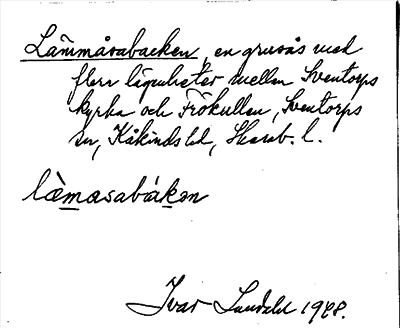 Lammåsabacken, en grusås med
flera lägenheter mellan Sventorps
kyrka och Frökullen, Sventorps
sn, Kåkinds hd, Skarab. l.
làmasabáken
Ivar Lundahl 1948.